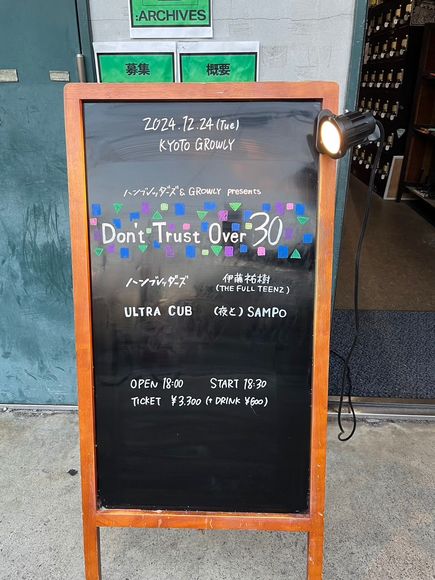 :ARCHIVES
募集 概要
2024.12.24(Tue)
KYOTO GROWLY
ハンブレッダーズ & GROWLY presents
Don't Trust Over 30
ハンブレッダーズ 伊藤祐樹
(THE FULL TEENZ)
ULTRA CUB (夜と)SAMPO
OPEN 18:00 START 18:30
TICKET ¥3.300 (+DRINK ¥600)